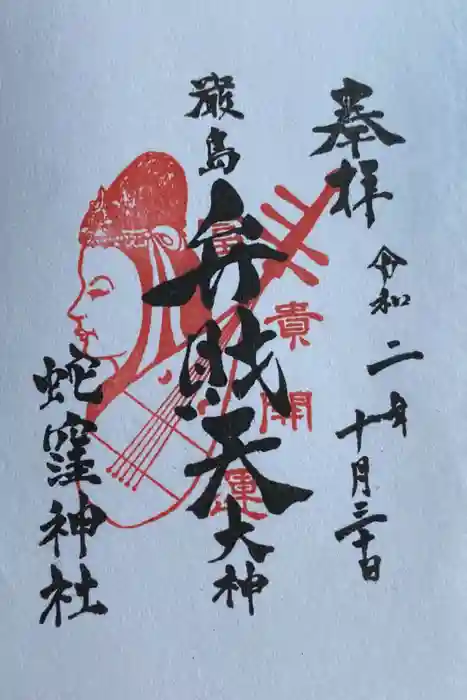 奉拝
令和二年十月三十日
厳島
弁財天
大神
蛇窪神社
富貴開運